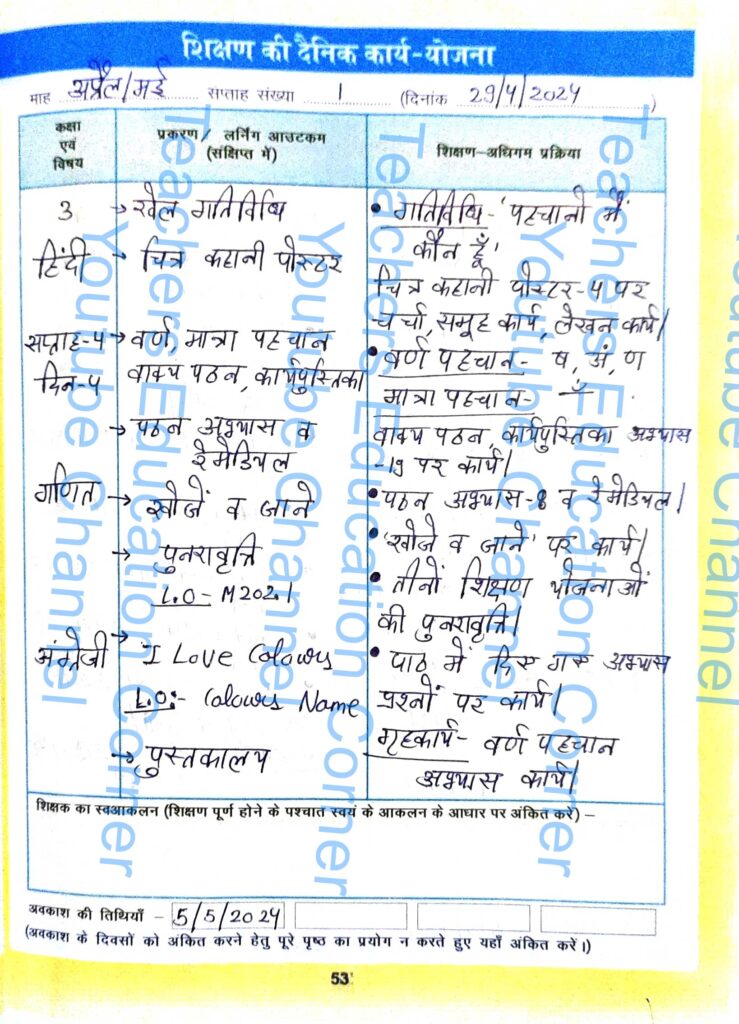 शिक्षण की दैनिक कार्य-योजना
माह अप्रैल/मई सप्ताह संख्या 1 (दिनांक 29/4/2024)
कक्षा एवं विषय
प्रकरण / लर्निंग आउटकम (संक्षिप्त में)
शिक्षण-अधिगम प्रक्रिया
3
हिंदी
सप्ताह-4
दिन-4
गणित
अंग्रेजी
→ खेल गतिविधि
→ चित्र कहानी पोस्टर
→ वर्ण, मात्रा पहचान
वाक्य पठन, कार्यपुस्तिका
→ पठन अभ्यास व
रेमेडियल
→ खोजें व जाने
→ पुनरावृत्ति
L.O- M202.1
→ I Love Colours
L.O:- Colours Name
→ पुस्तकालय
• गतिविधि- 'पहचानो मैं
कौन हूँ'
चित्र कहानी पोस्टर-4 पर
चर्चा, समूह कार्य, लेखन कार्य।
• वर्ण पहचान- ष, अं, ण
मात्रा पहचान-
वाक्य पठन, कार्यपुस्तिका अभ्यास
-19 पर कार्य।
• पठन अभ्यास-8 व रेमेडियल।
• 'खोजे व जाने' पर कार्य।
• तीनों शिक्षण योजनाओं
की पुनरावृत्ति।
• पाठ में दिए गए अभ्यास
प्रश्नों पर कार्य।
गृहकार्य- वर्ण पहचान
अभ्यास कार्य।
शिक्षक का स्वआकलन (शिक्षण पूर्ण होने के पश्चात स्वयं के आकलन के आधार पर अंकित करें) –
अवकाश की तिथियाँ – 5/5/2024
(अवकाश के दिवसों को अंकित करने हेतु पूरे पृष्ठ का प्रयोग न करते हुए यहाँ अंकित करें।)
53
Teachers Education Corner
Youtube Channel
Teachers Education Corner
Youtube Channel
Teachers Education Corner
Youtube Channel